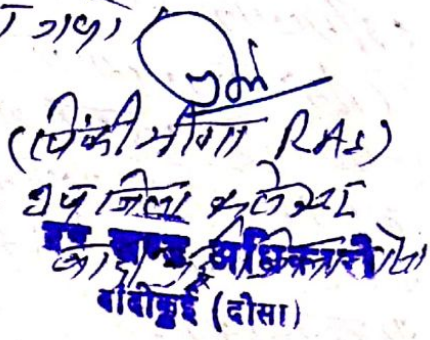 गया
(पिंकी मीणा RAS)
उप जिला कलेक्टर
उप खण्ड अधिकारी
बांदीकुई (दौसा)